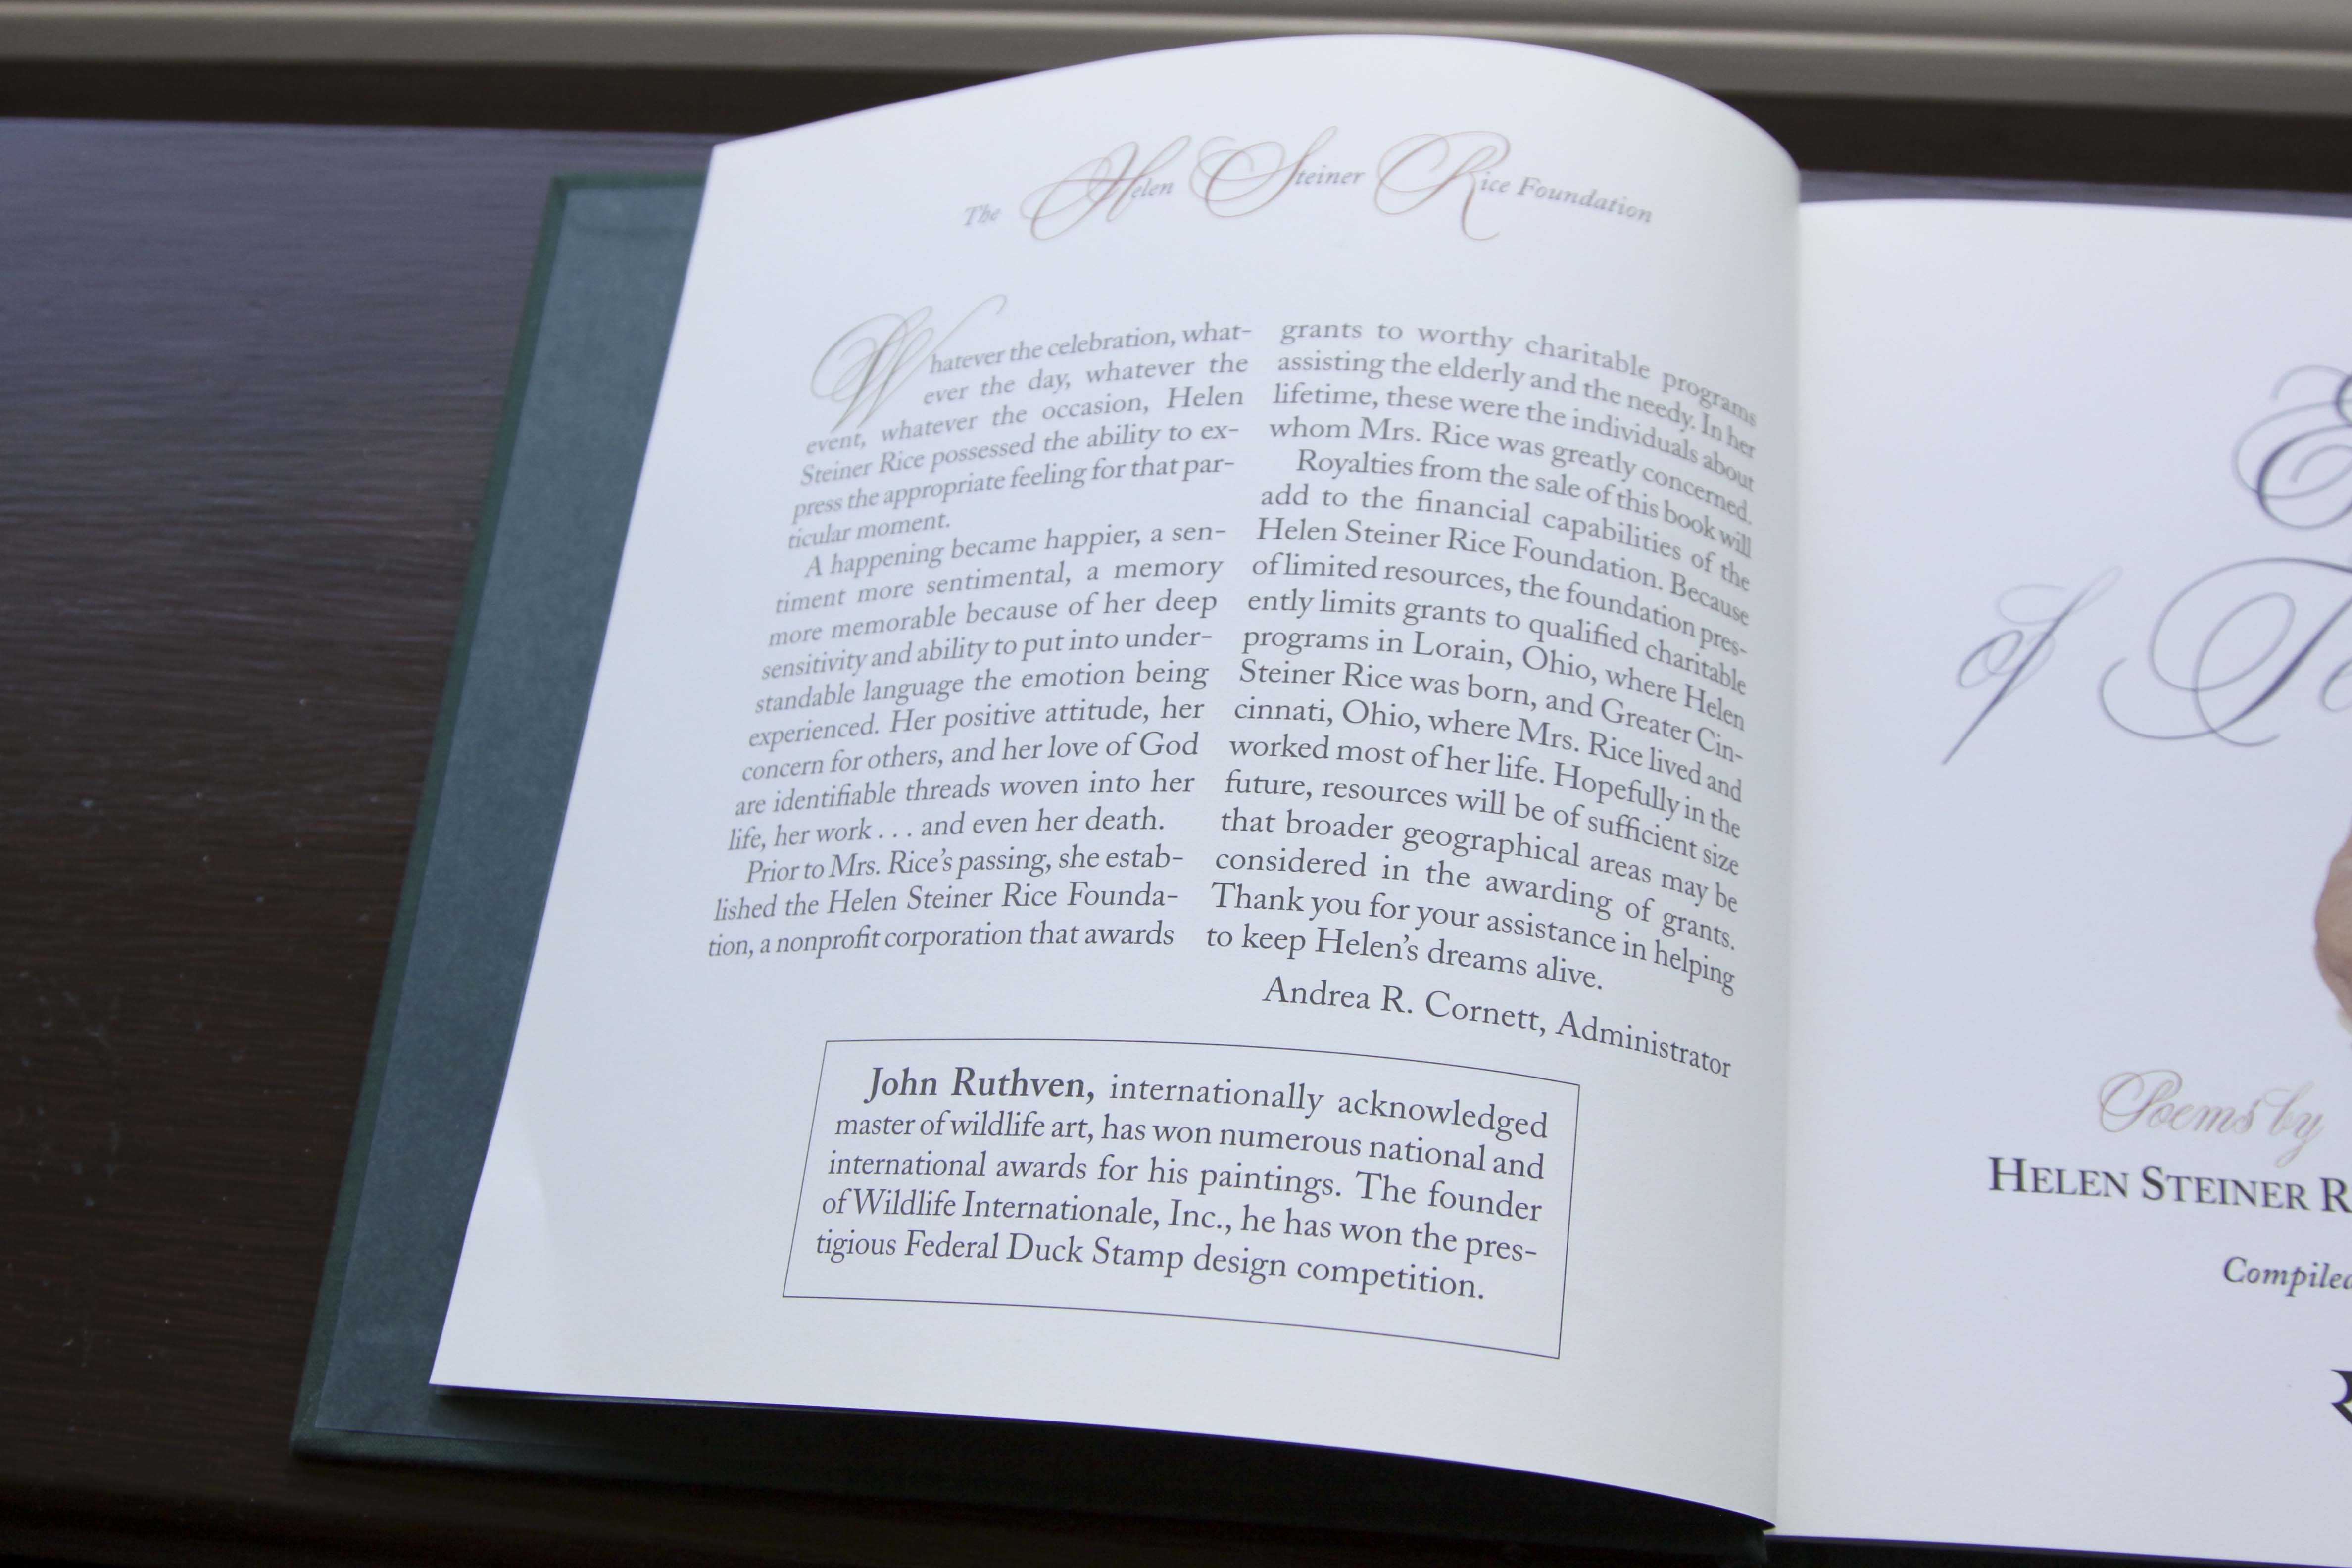 The Helen Steiner Rice Foundation
Whatever the celebration, what-
ever the day, whatever the
event, whatever the occasion, Helen
Steiner Rice possessed the ability to ex-
press the appropriate feeling for that par-
ticular moment.
A happening became happier, a sen-
timent more sentimental, a memory
more memorable because of her deep
sensitivity and ability to put into under-
standable language the emotion being
experienced. Her positive attitude, her
concern for others, and her love of God
are identifiable threads woven into her
life, her work . . . and even her death.
Prior to Mrs. Rice's passing, she estab-
lished the Helen Steiner Rice Founda-
tion, a nonprofit corporation that awards
grants to worthy charitable programs
assisting the elderly and the needy. In her
lifetime, these were the individuals about
whom Mrs. Rice was greatly concerned.
Royalties from the sale of this book will
add to the financial capabilities of the
Helen Steiner Rice Foundation. Because
of limited resources, the foundation pres-
ently limits grants to qualified charitable
programs in Lorain, Ohio, where Helen
Steiner Rice was born, and Greater Cin-
cinnati, Ohio, where Mrs. Rice lived and
worked most of her life. Hopefully in the
future, resources will be of sufficient size
that broader geographical areas may be
considered in the awarding of grants.
Thank you for your assistance in helping
to keep Helen's dreams alive.
Andrea R. Cornett, Administrator
John Ruthven, internationally acknowledged
master of wildlife art, has won numerous national and
international awards for his paintings. The founder
of Wildlife Internationale, Inc., he has won the pres-
tigious Federal Duck Stamp design competition.
of
Poems by
HELEN STEINER R
Compiled